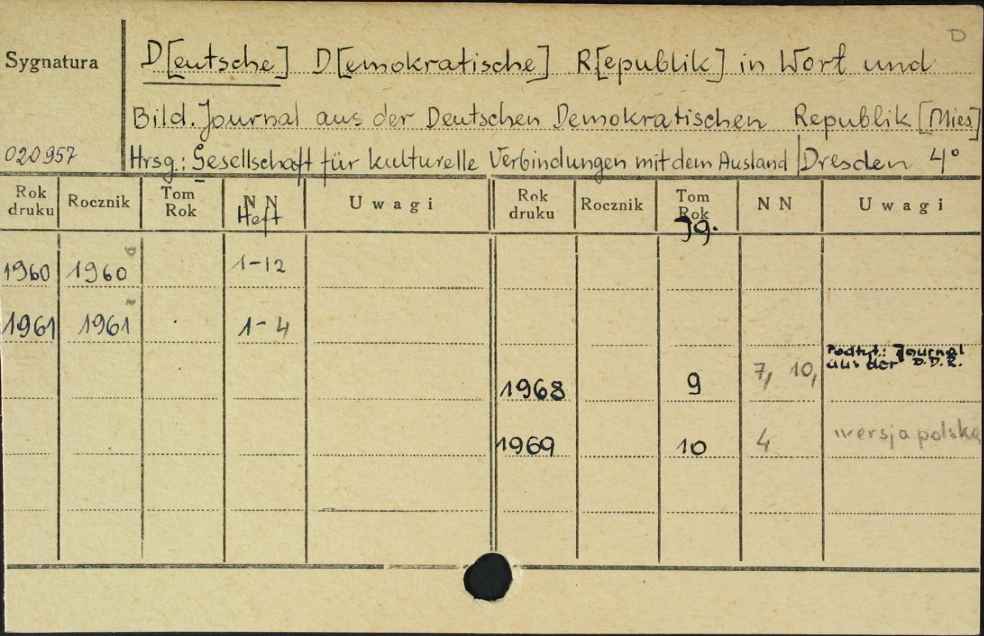 D
Sygnatura D[eutsche] D[emokratische] R[epublik] in Wort und
Bild. Journal aus der Deutschen Demokratischen Republik [Mies]
020957 Hrsg.: Gesellschaft für kulturelle Verbindungen mit dem Ausland Dresden 4°
Rok druku Rocznik Tom Rok NN Heft Uwagi Rok druku Rocznik Tom Rok Jg. NN Uwagi
1960 1960 1-12
1961 1961 1-4
Podtyt.: Journal
aus der D.D.R.
1968 9 7, 10,
1969 10 4 wersja polska